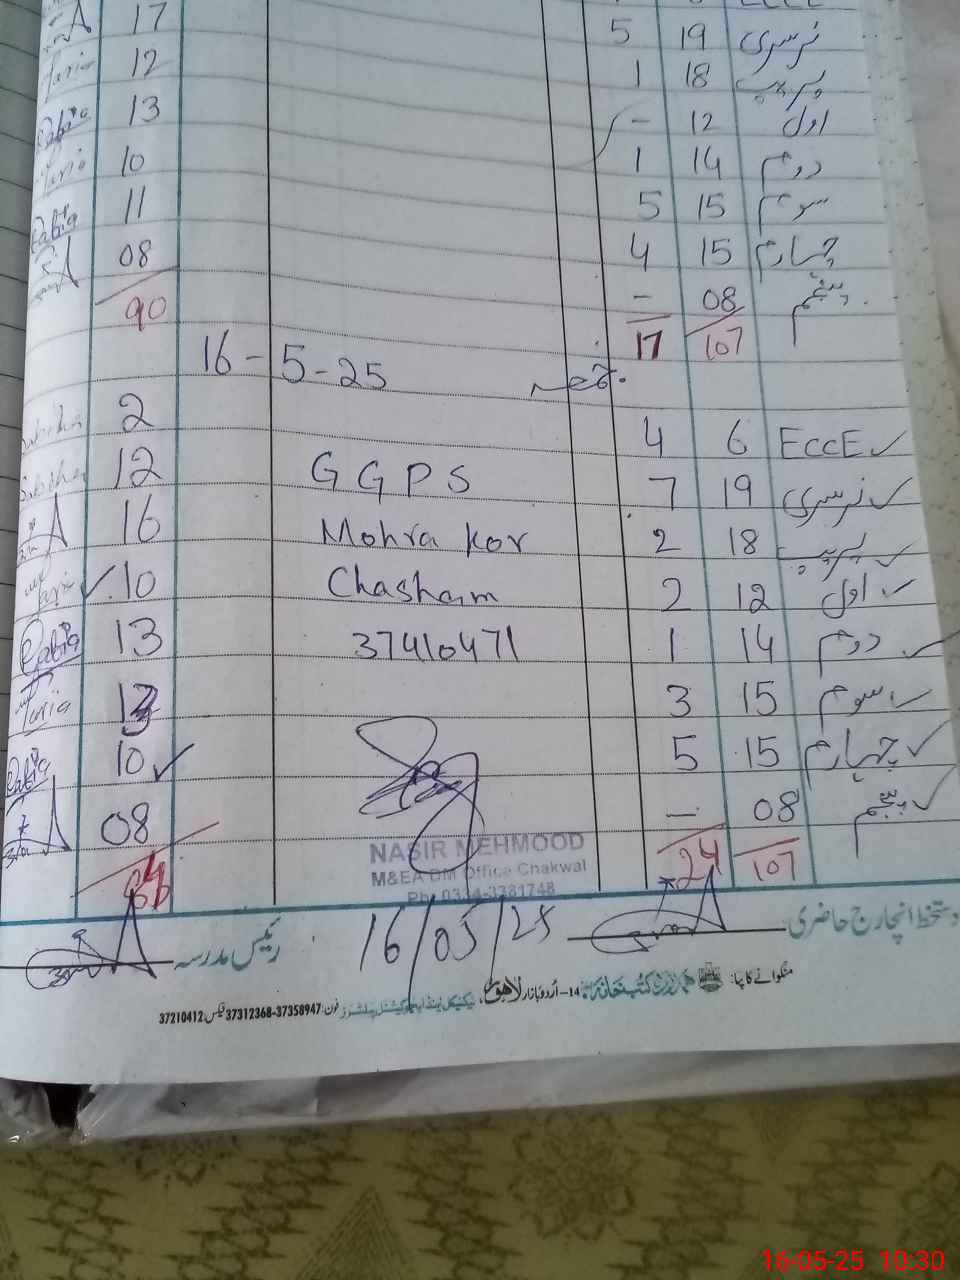 17 5 19 نرسری
Maria 12 1 18 پریپ
Rabia 13 - 12 اول
Maria 10 1 14 دوم
Rabia 11 5 15 سوم
08 4 15 چہارم
- 08 پنجم
90 17 107
16-5-25 جمعہ
2 4 6 ECCE ✓
12 GGPS 7 19 نرسری ✓
16 Mohra kor 2 18 پریپ ✓
✓ 10 Chasham 2 12 اول ✓
Rabia 13 37410471 1 14 دوم ✓
Maria 3 15 سوم ✓
Rabia 10 ✓ 5 15 چہارم ✓
08 - 08 پنجم ✓
24 107
NASIR MEHMOOD
M&EA DM Office Chakwal
Ph: 0334-3381748
دستخط انچارج حاضری 16/05/25 رئیس مدرسہ
منگوانے کا پتا: ہمدرد کتب خانہ 14-اُردو بازار لاہور، فون: 37358947-37312368 فیکس: 37210412
16-05-25 10:30